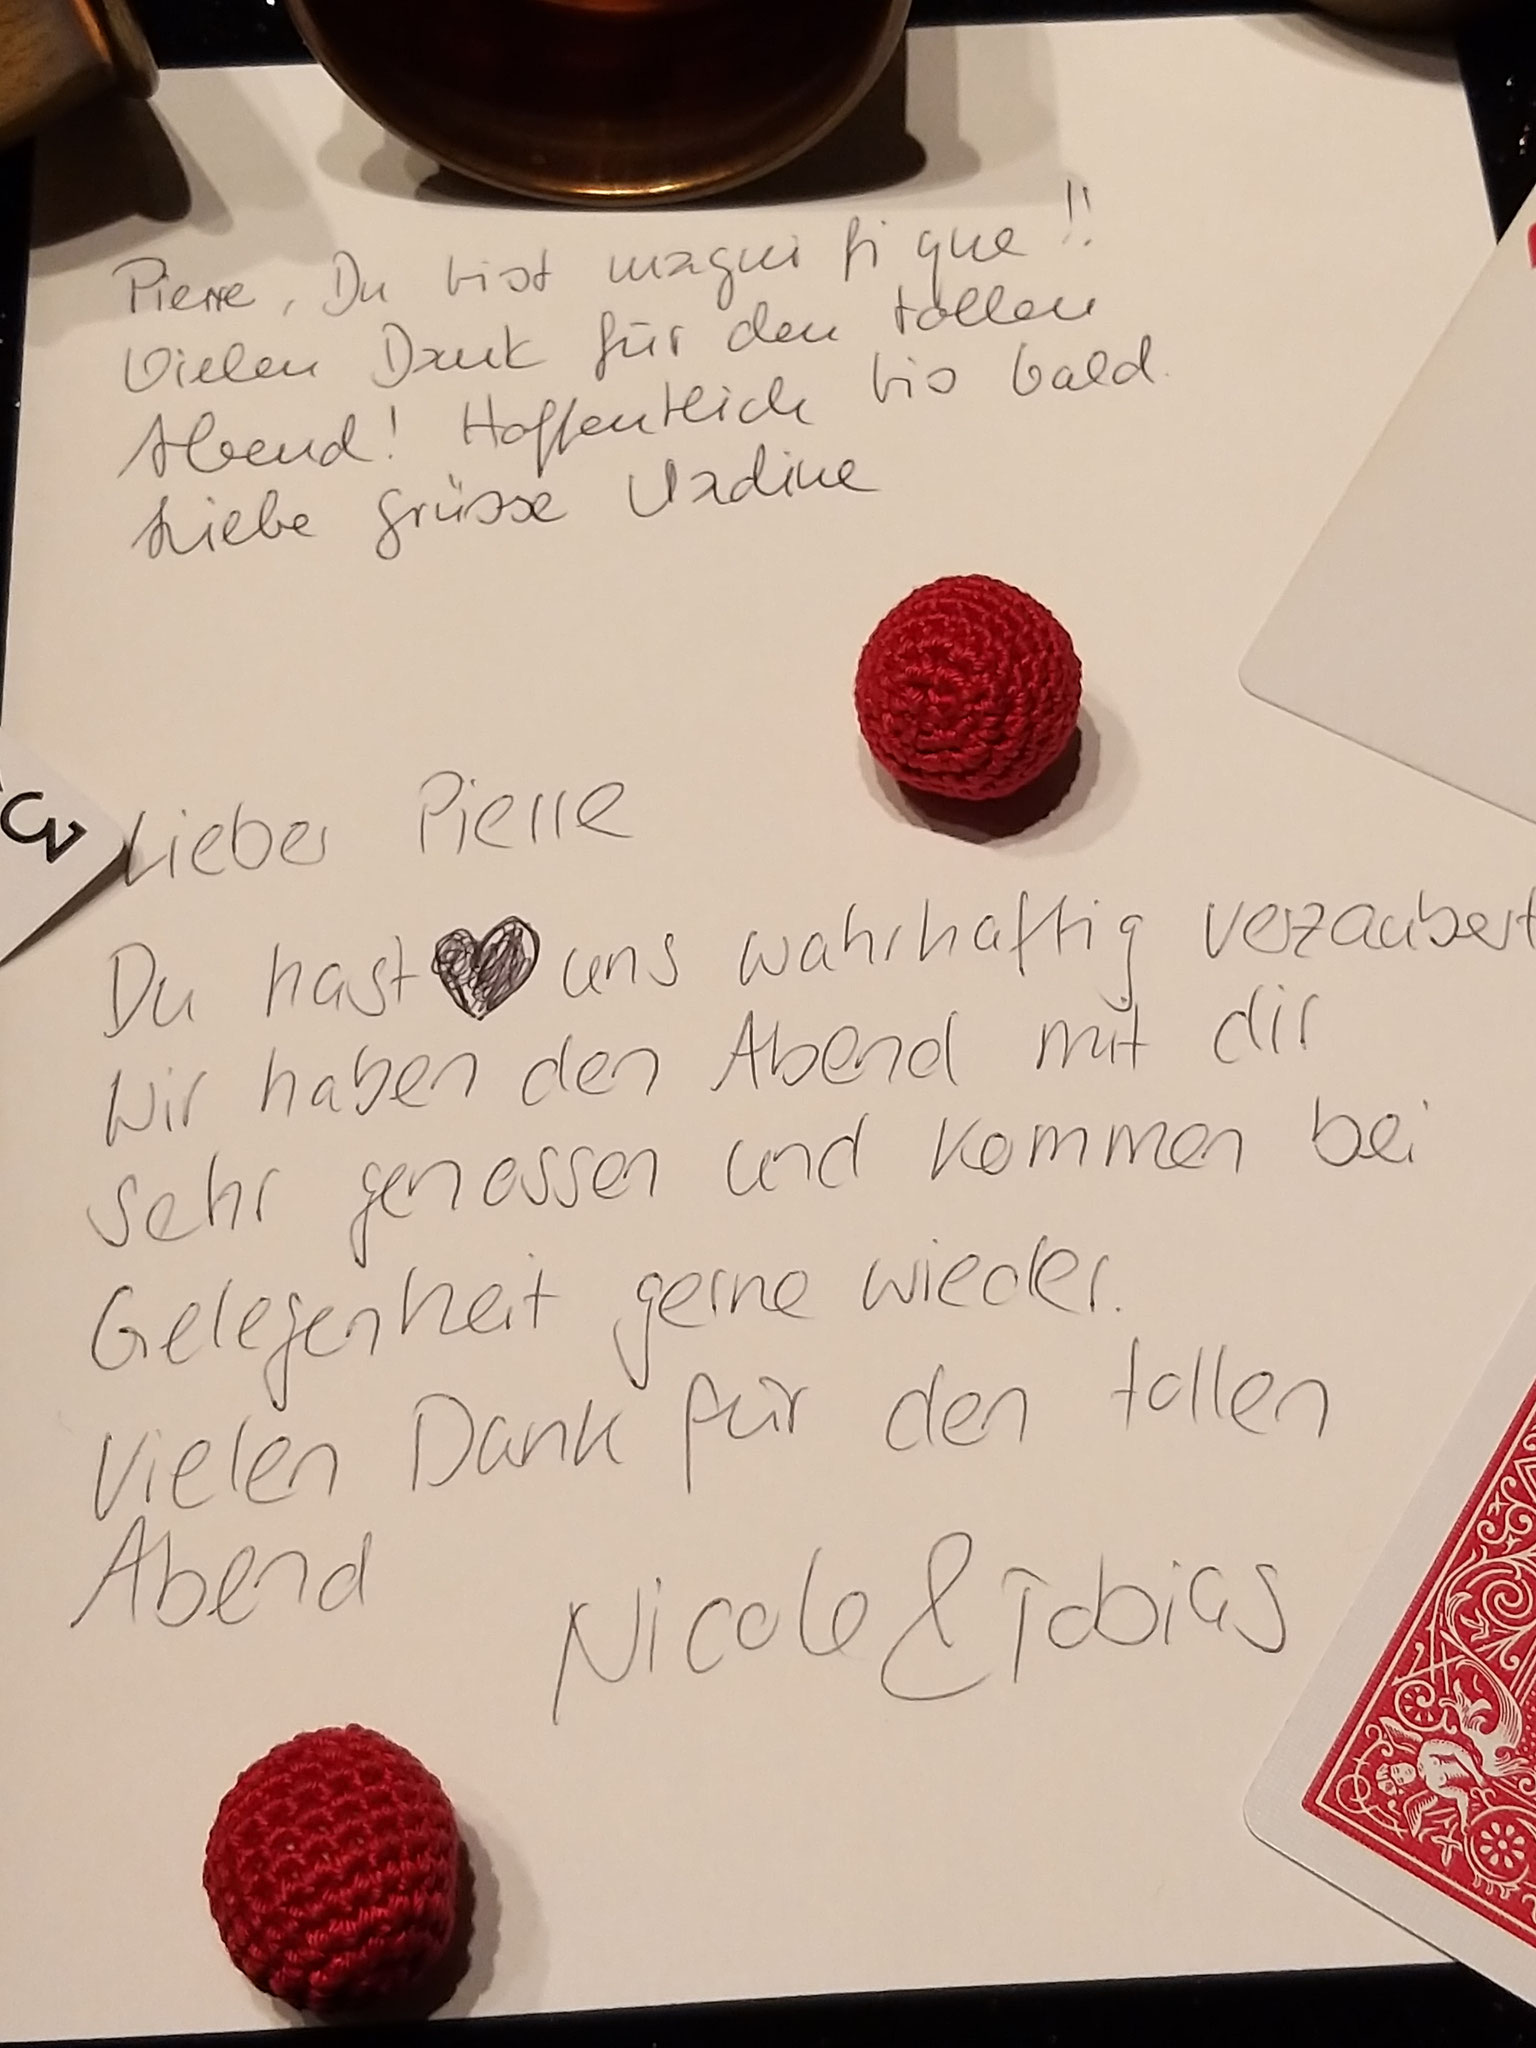 Pierre, Du bist magnifique!!
Vielen Dank für den tollen
Abend! Hoffentlich bis bald.
Liebe Grüsse Nadine
3
Lieber Pierre
Du hast ♥ uns wahrhaftig verzaubert
Wir haben den Abend mit dir
sehr genossen und kommen bei
Gelegenheit gerne wieder.
Vielen Dank für den tollen
Abend
Nicole & Tobias